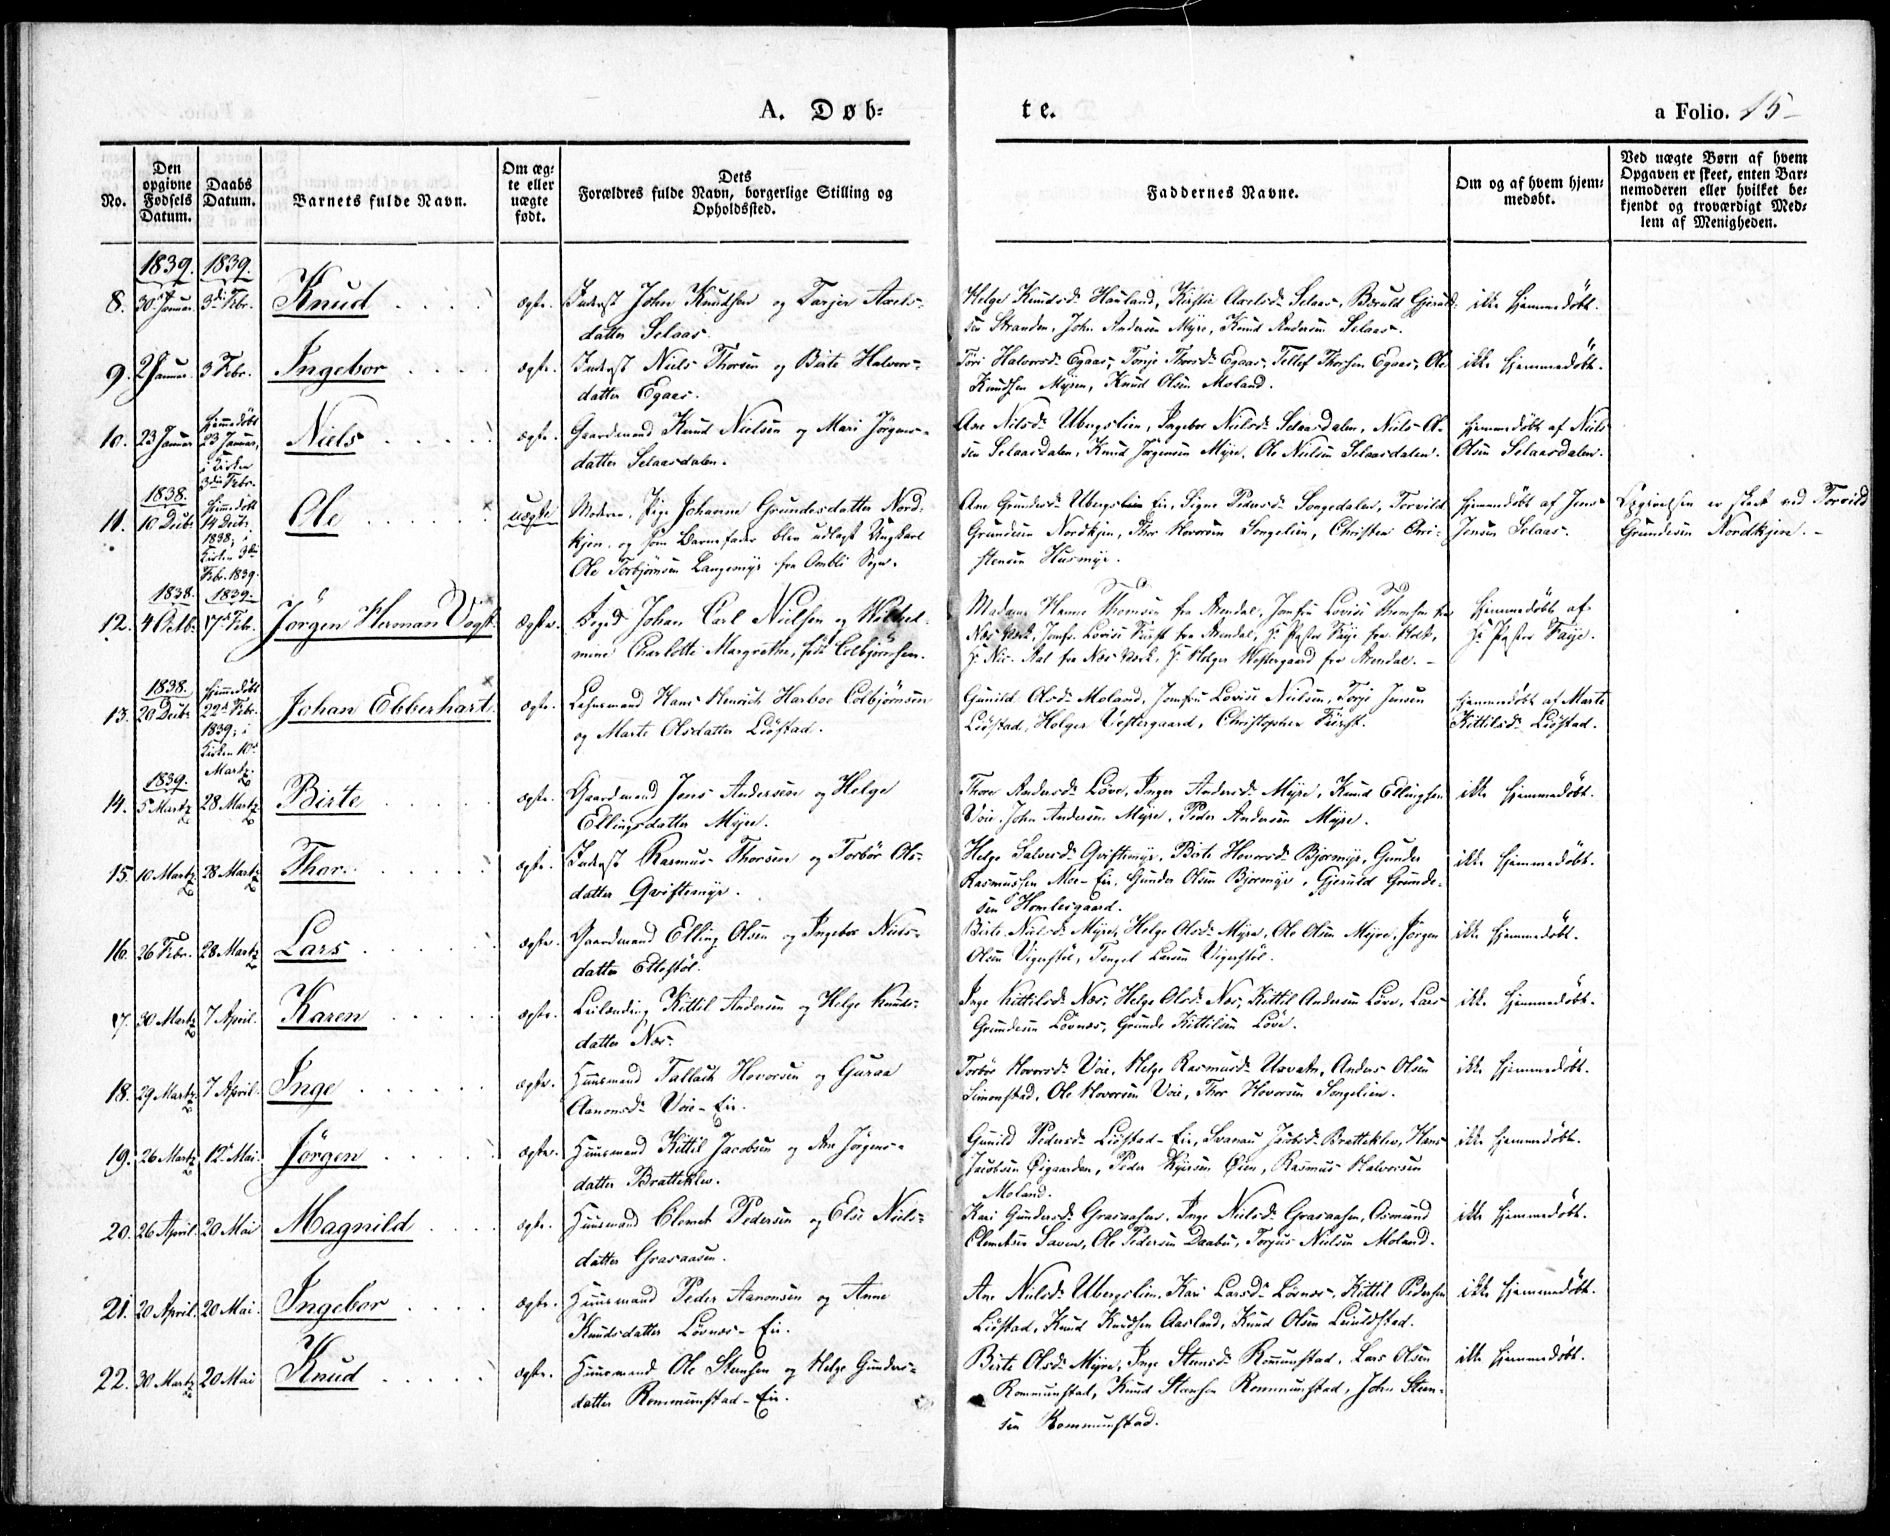 A. Døb-
te.
a Folio. 15
No.
Den opgivne Fødsels Datum.
Daabs Datum.
Barnets fulde Navn.
Om ægte eller uægte født.
Dets Forældres fulde Navn, borgerlige Stilling og Opholdssted.
Faddernes Navne.
Om og af hvem hjemmedøbt.
Ved uægte Børn af hvem Opgaven er skeet, enten Barnemoderen eller hvilket bekjendt og troværdigt Medlem af Menigheden.
1839. 1839.
8. 30 Januar 3die Febr. Knud ægte. Inderst John Knudsen og Tarjer Axels-
datter Selaas.
Helge Knudsd. Hauland, Kirstie Axelsd. Selaas, Bæruld Gjeruld-
sen Stranden, John Andersen Myre, Knud Andersen Selaas.
ikke hjemmedøbt.
9. 2 Januar 3 Febr. Ingebor ægte. Inderst Niels Thorsen og Birte Halvors-
datter Egaas.
Halvorsd. Egaas, Tonje Thorsd. Egaas, Tellef Thorsen Egaas, Ole
Knudsen Myren, Knud Olsen Moland.
ikke hjemmedøbt.
10. 23 Januar hjemmedøbt 23 Januar, i Kirken 3die Febr. Niels ægte. Gaardmand Knud Nielsen og Mari Jørgens-
datter Selaasdalen.
Ane Nilsd. Ubergslien, Ingebor Nielsd. Selaasdalen, Niels Ol-
sen Selaasdalen, Knud Jørgensen Myre, Ole Nielsen Selaasdalen.
hjemmedøbt af Niels
Olsen Selaasdalen.
11. 1838. 10 Decbr. hjemmedøbt 14 Decbr. 1838, i Kirken 3die Febr. 1839. Ole uægte Moderen Pige Johanne Grundesdatter Nord-
kjen, og som Barnefader blev udlagt Ungkarl
Ole Torbjørnsen Langemyr fra Omli Sogn.
Ane Grundesd. Ubergslien Eie, Signe Pedersd. Songedalen, Torvild
Grundesen Nordkjen, Thor Hovorsen Songelien, Christen Chri-
stensen Husmyr.
hjemmedøbt af Jens
Jensen Selaas.
Opgivelsen er skeet ved Torvild
Grundesen Nordkjen. -
12. 1838. 4 Octb. 1839. 17 Febr. Jörgen Herman Vogt. ægte. Johan Carl Nielsen og Wilhel-
mine Charlotte Margrethe, født Colbjørnsen.
Madame Hanne Thomsen fra Arendal, Jomfru Lovise Thomsen fra
Næs Værk, Jomfr. Lovise Fürst fra Arendal, Hr Pastor Faye fra Holt,
Hr Nic. Aal fra Næs Værk, Hr Holger Westergaard fra Arendal. -
hjemmedøbt af
Hr Pastor Faije.
13. 1838. 20 Decbr. hjemmedøbt 22de Febr. 1839, i Kirken 10de Martz. Johan Ebberhart. ægte. Lehnsmand Hans Henrich Harboe Colbjørnsen
og Marte Olsdatter Liøstad.
Gunild Olsd. Moland, Jomfru Lovise Nielsen, Torje Jensen
Liøstad, Holger Vestergaard, Christopher Fürst.
hjemmedøbt af Marte
Kittilsd. Liøstad.
14. 1839. 5 Martz 28 Martz Birte ægte. Gaardmand Jens Andersen og Helge
Ellingsdatter Myre.
Thore Andersd. Løve, Inger Andersd. Myre, Knud Ellingsen
Voie, John Andersen Myre, Peder Andersen Myre.
ikke hjemmedøbt.
15. 10 Martz 28 Martz Thor. ægte. Inderst Rasmus Thorsen og Torbør Ols-
datter Qviftemyr.
Helge Salvesd. Qviftemyr, Birte Hovorsd. Bjormyr, Gunder
Rasmussen Moe-Eie, Gunder Olsen Bjormyr, Gjeruld Grunde-
sen Homlesgaard.
ikke hjemmedøbt.
16. 26 Febr. 28 Martz Lars ægte. Gaardmand Elling Olsen og Ingebor Niels-
datter Ettestøl.
Birte Nielsd. Myre, Helge Olsd. Myre, Ole Olsen Myre, Jørgen
Olsen Vigerstøl, Tengel Larsen Vigerstøl.
ikke hjemmedøbt.
17. 30 Martz 7 April. Karen ægte. Leilænding Kittil Andersen og Helge Knuds-
datter Næs.
Inge Kittilsd. Næs, Helge Olsd. Næs, Kittil Andersen Løve, Lars
Grundesen Løvnæs, Grunde Kittilsen Løve.
ikke hjemmedøbt.
18. 29 Martz 7 April. Inge ægte. Huusmand Tallak Hovorsen og Guraa
Aanonsd. Voie-Eie.
Torbør Hovorsd. Voie, Helge Rasmusd. Uxvatn, Anders Olsen
Simonstad, Ole Hovorsen Voie, Thor Hovorsen Songelien.
ikke hjemmedøbt.
19. 26 Martz 12 Mai. Jörgen ægte. Huusmand Kittil Jacobsen og Ane Jørgens-
datter Bratteklev.
Gunild Pedersd. Liøstad-Eie, Svanau Jacobsd. Bratteklev, Hans
Jacobsen Øigaarden, Peder Øien, Rasmus Halvorsen
Moland.
ikke hjemmedøbt.
20. 26 April. 20 Mai Magnild ægte. Huusmand Clemet Pedersen og Else Niels-
datter Grasaasen.
Kari Gundersd. Grasaasen, Inge Nielsd. Grasaasen, Osmund
Clemetsen Saven, Ole Pedersen Daabu, Torjus Nielsen Moland.
ikke hjemmedøbt.
21. 20 April. 20 Mai. Ingebor ægte. Huusmand Peder Aanonsen og Anne
Knudsdatter Løvnæs-Eie.
Ane Nielsd. Ubergslien, Kari Larsd. Løvnæs, Kittil Pedersen
Liøstad, Knud Knudsen Aasland, Knud Olsen
ikke hjemmedøbt.
22. 30 Martz 20 Mai Knud ægte. Huusmand Ole Stensen og Helge Gunders-
datter Rommunstad-Eie.
Birte Olsd. Myre, Inge Stensd. Rommunstad, Lars Olsen
Rommunstad, Knud Stensen Rommunstad, John Sten-
sen Rommunstad.
ikke hjemmedøbt.